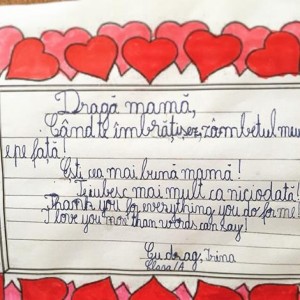 Dragă mamă,
Când te îmbrățișez, zâmbetul meu
e pe față!
Ești cea mai bună mamă!
Te iubesc mai mult ca niciodată!
Thank you for everything you do for me!
I love you more than words can say!
Cu drag, Irina
Clasa I A